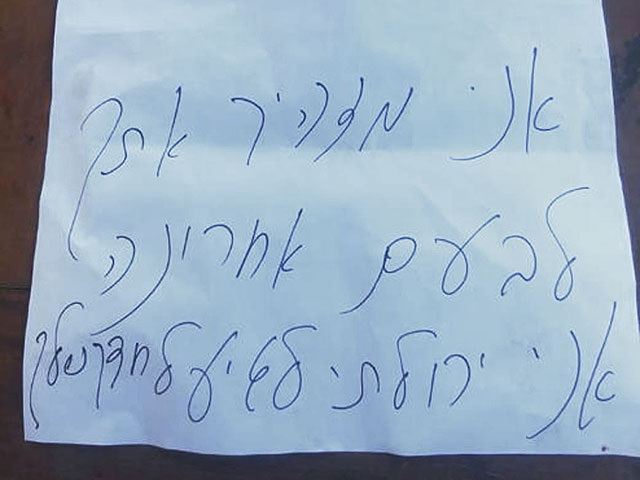 אני מזהיר אתך
לבעם אחרונה
אני יכולתי לגיע לחדר שלך